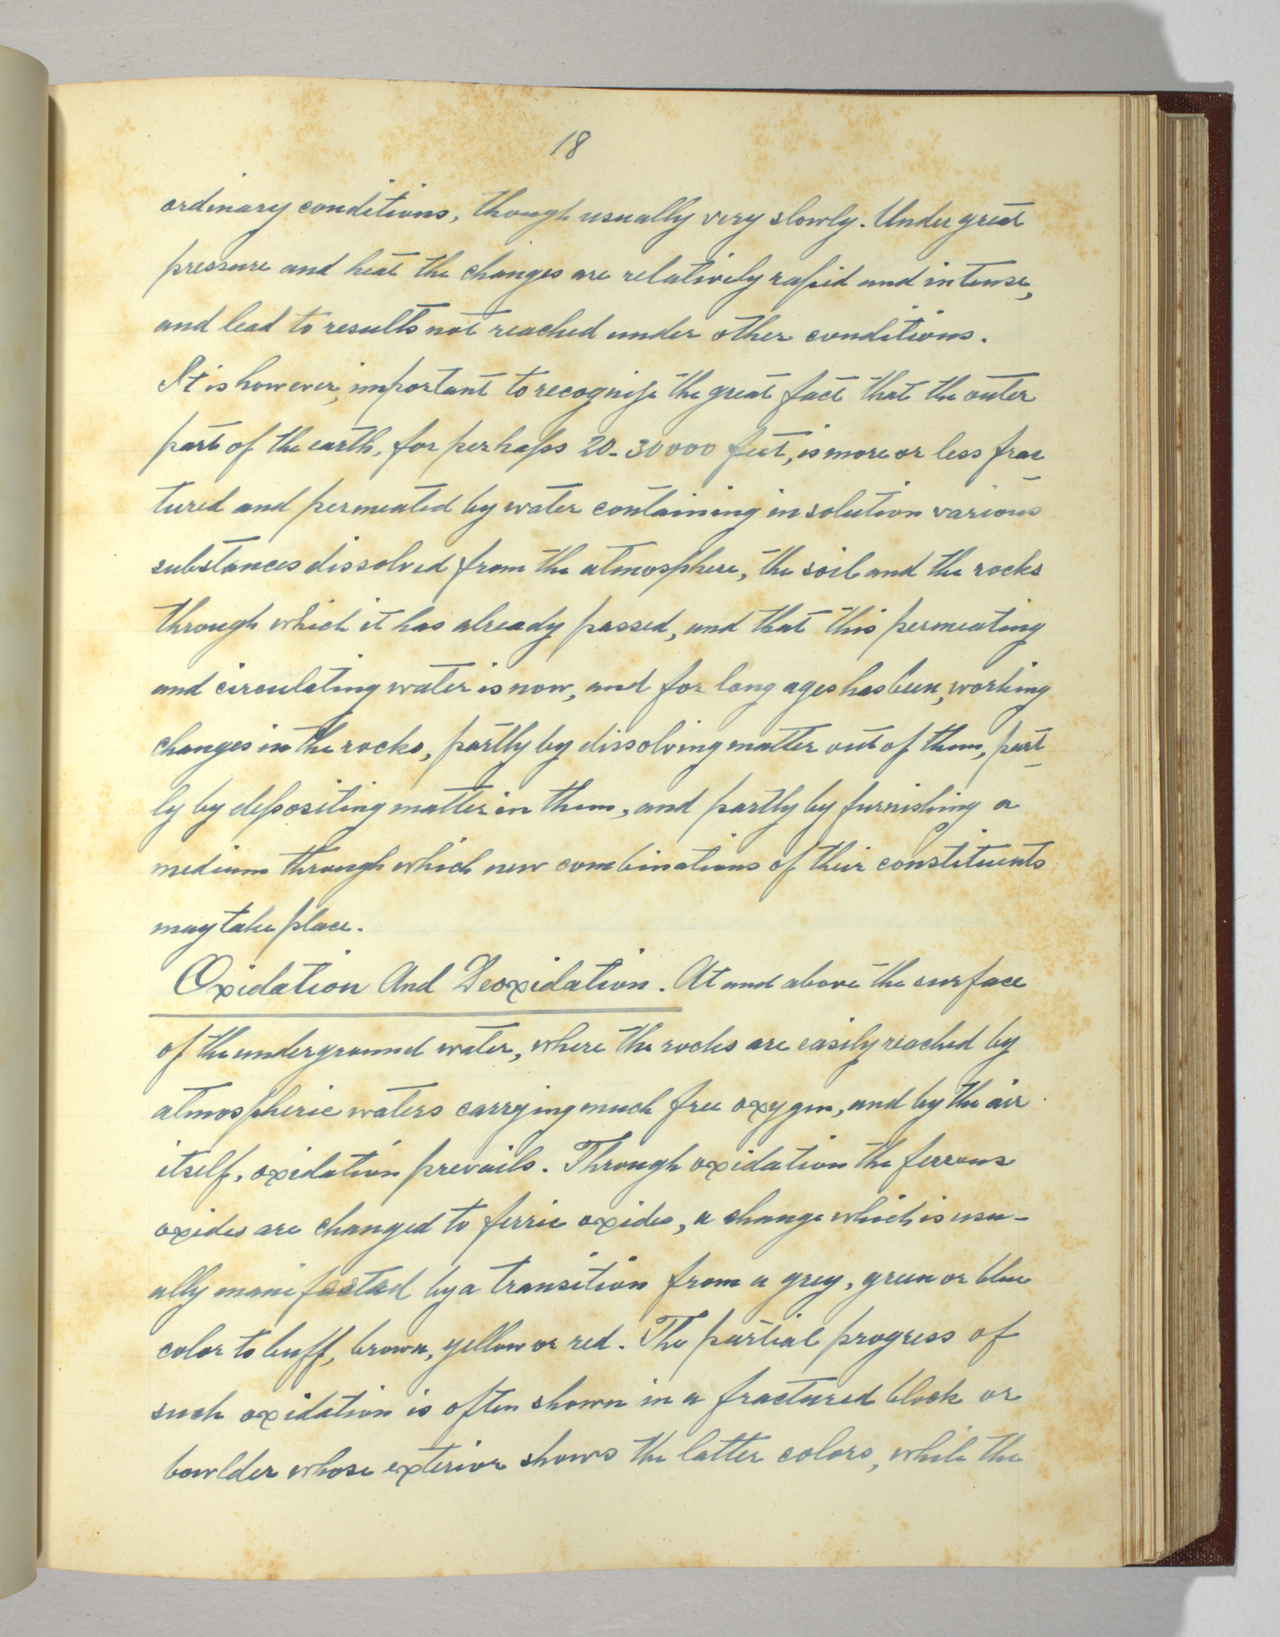 18
ordinary conditions, though usually very slowly. Under great
pressure and heat the changes are relatively rapid and intense,
and lead to results not reached under other conditions.
It is however, important to recognize the great fact that the outer
part of the earth, for perhaps 20-30000 feet, is more or less frac-
tured and permeated by water containing in solution various
substances dissolved from the atmosphere, the soil and the rocks
through which it has already passed, and that this permeating
and circulating water is now, and for long ages has been, working
changes in the rocks, partly by dissolving matter out of them, part-
ly by depositing matter in them, and partly by furnishing a
medium through which new combinations of their constituents
may take place.
Oxidation And Deoxidation. At and above the surface
of the underground water, where the rocks are easily reached by
atmospheric waters carrying much free oxygen, and by the air
itself, oxidation prevails. Through oxidation the ferrous
oxides are changed to ferric oxides, a change which is usu-
ally manifested by a transition from a grey, green or blue
color to buff, brown, yellow or red. The partial progress of
such oxidation is often shown in a fractured block or
bowlder whose exterior shows the latter colors, while the